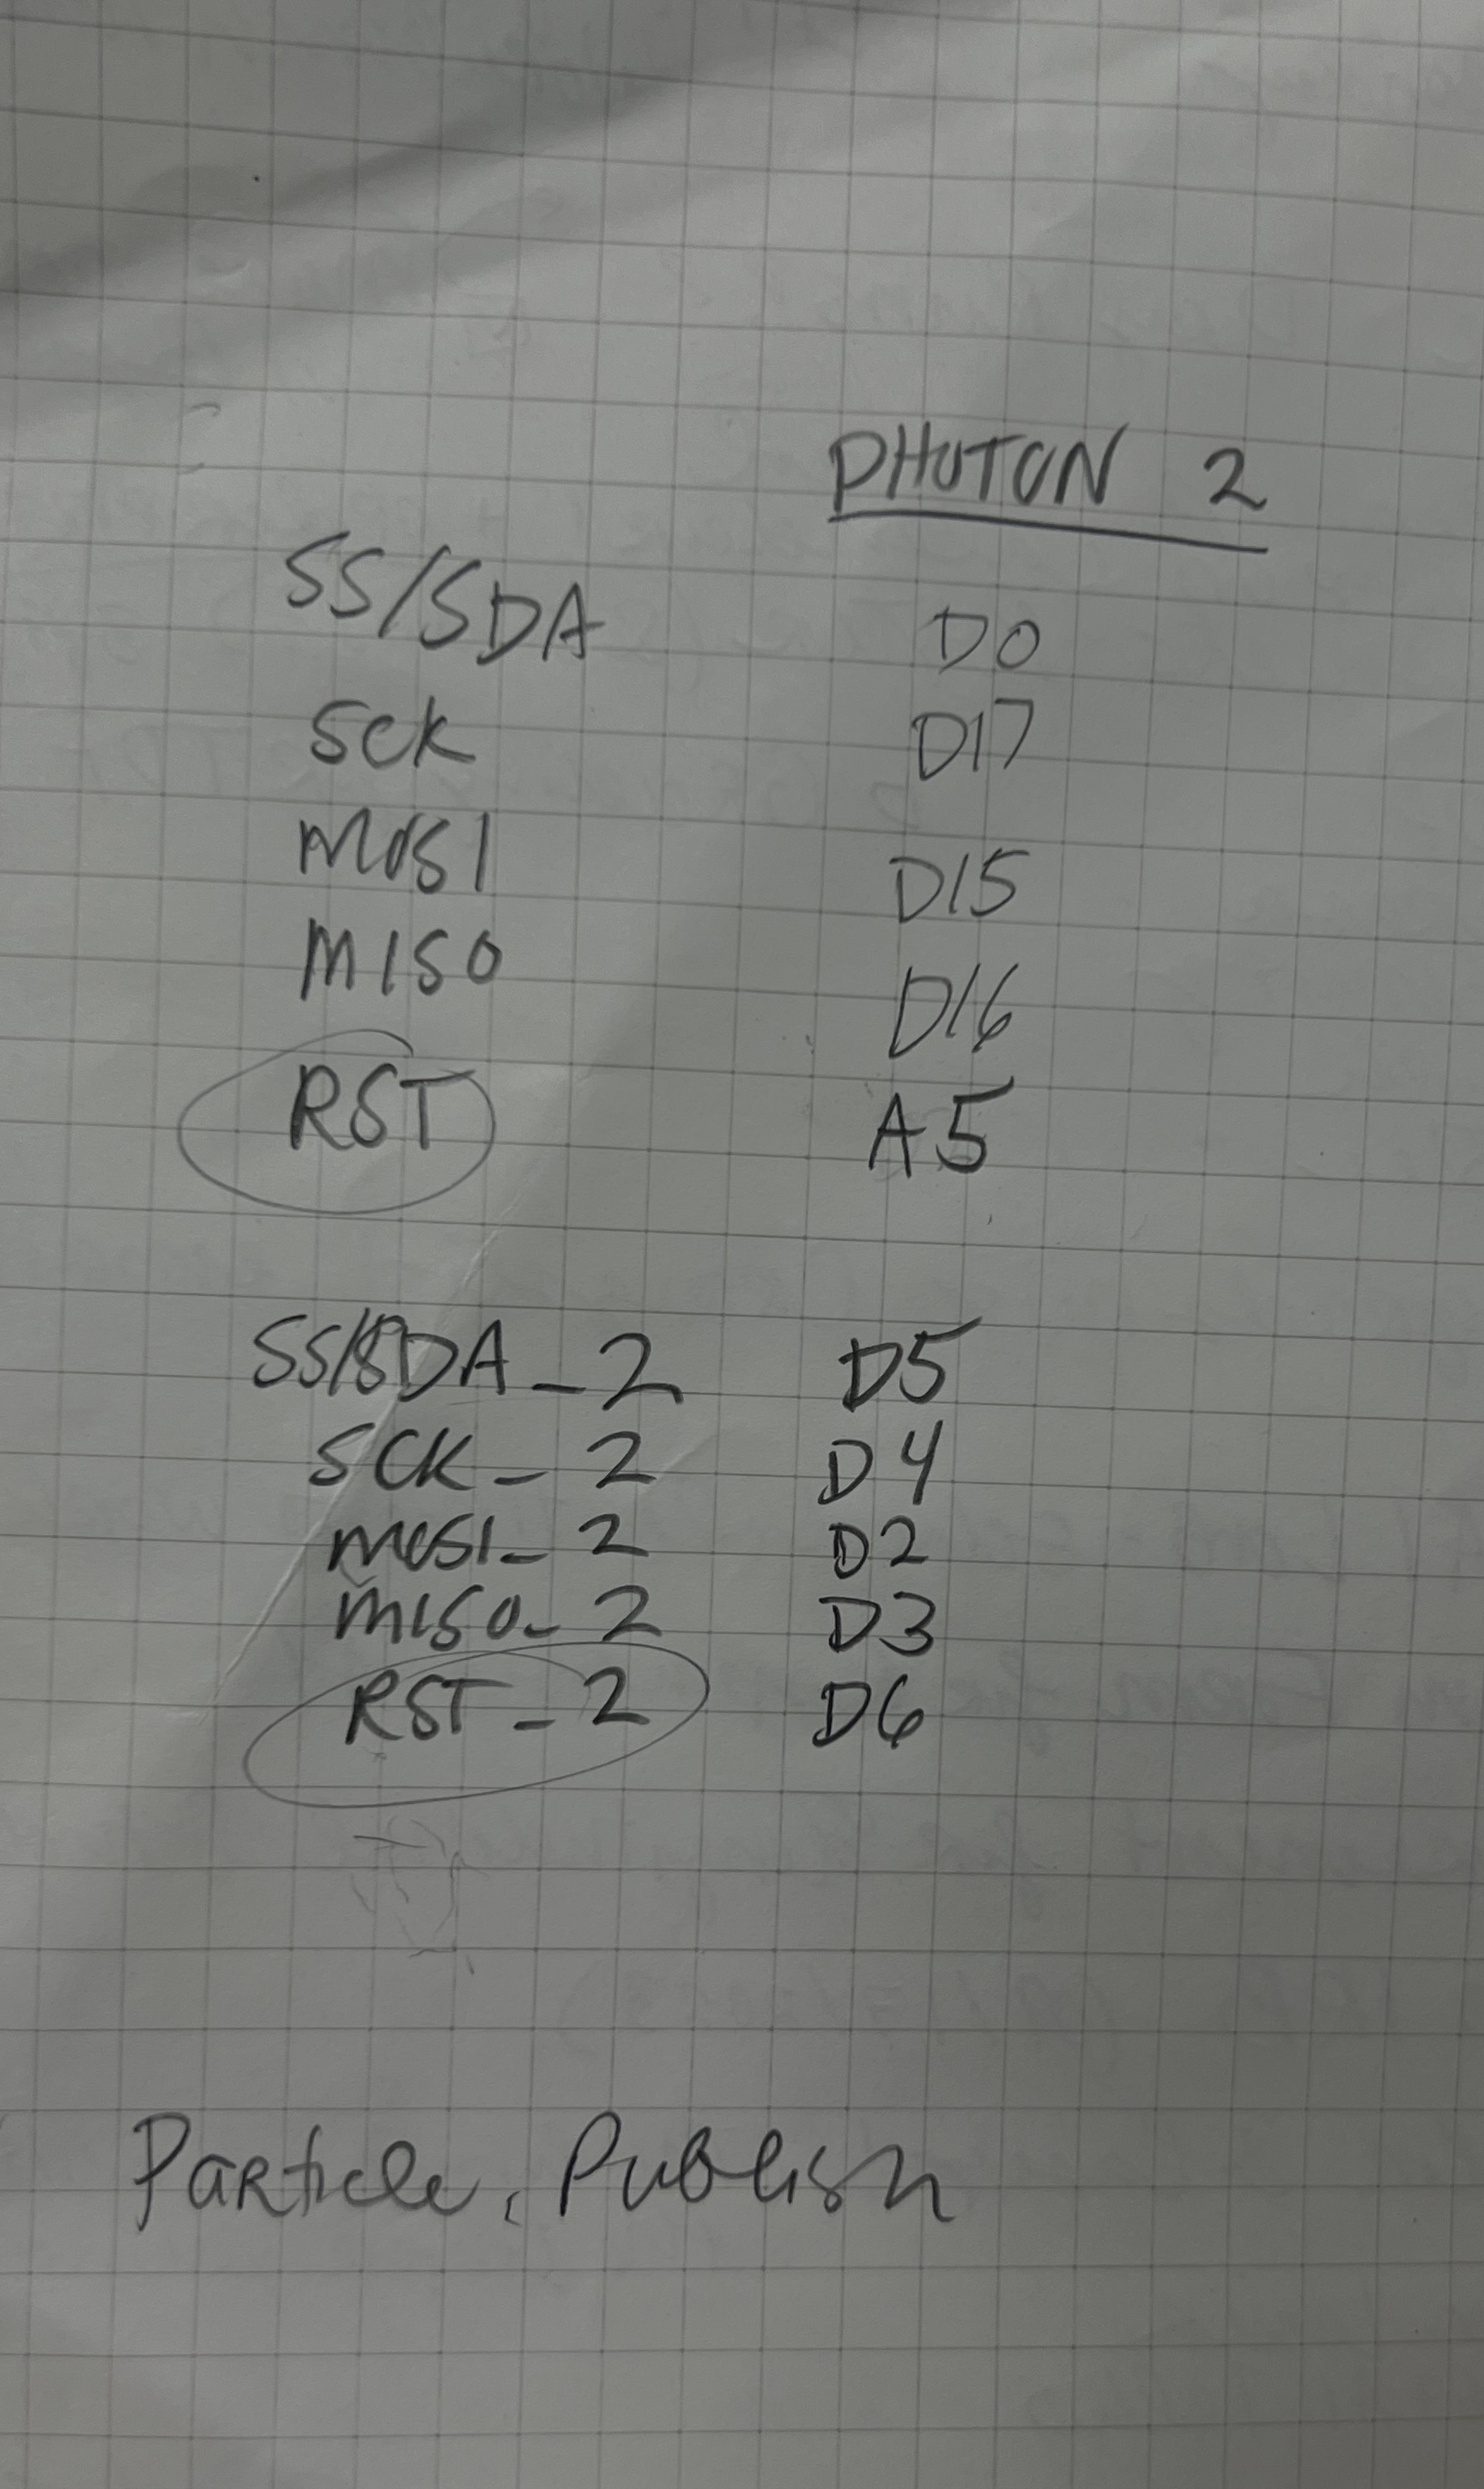 PHOTON 2
SS/SDA D0
SCK D17
MOSI D15
MISO D16
RST A5
SS/SDA_2 D5
SCK_2 D4
MOSI_2 D2
MISO_2 D3
RST_2 D6
Particle.Publish